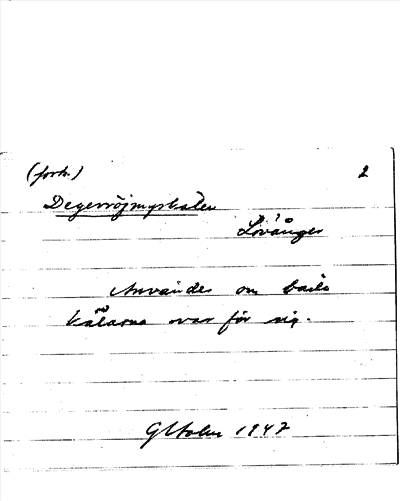 (forts.) 2
Degerröjmyrkälen
Lövånger
Användes om båda
kälarna var för sig.
G Holm 1947